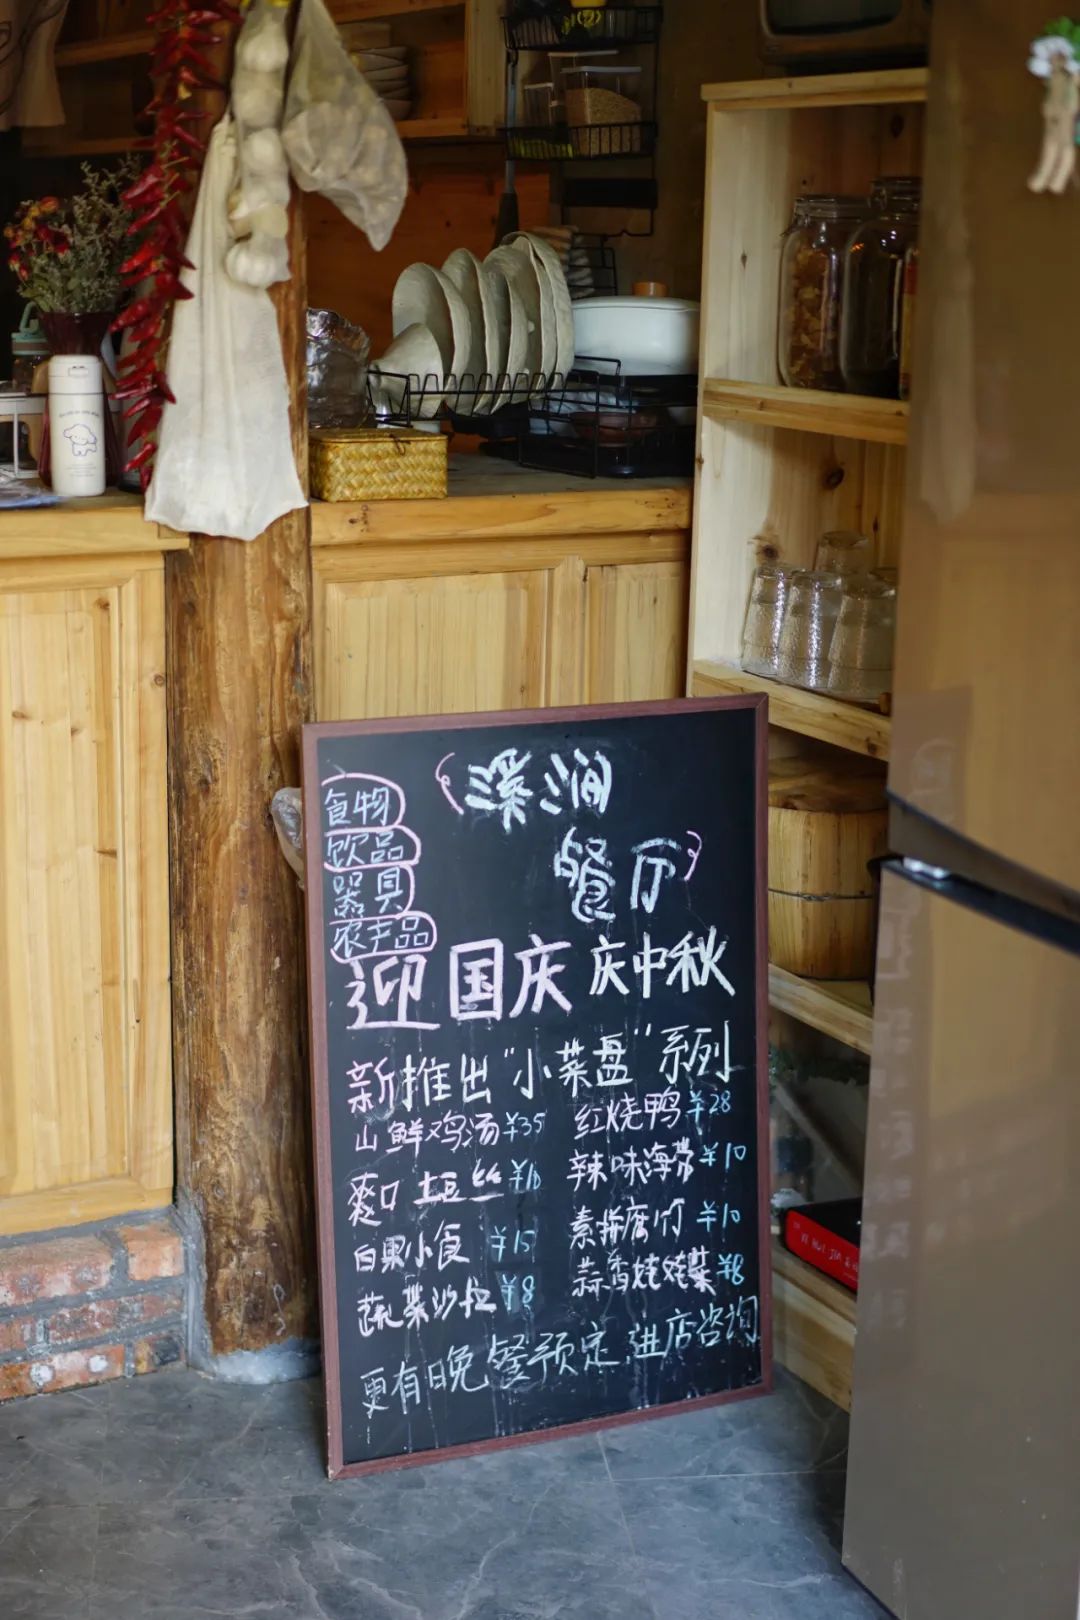 溪涧
餐厅
食物
饮品
器具
农产品
迎国庆 庆中秋
新推出"小菜盘"系列
山鲜鸡汤 ¥35 红烧鸭 ¥28
爽口土豆丝 ¥10 辣味海带 ¥10
白果小食 ¥15 素拼腐竹 ¥10
蔬菜沙拉 ¥8 蒜香 ¥8
更有晚餐预定 进店咨询